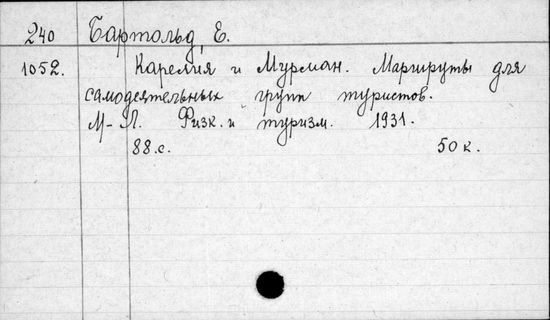 240 Бартольд, Е.
1052. Карелия и Мурман. Маршруты для
самодеятельных групп туристов.
М-Л. Физк. и туризм. 1931.
88.с. 50 к.